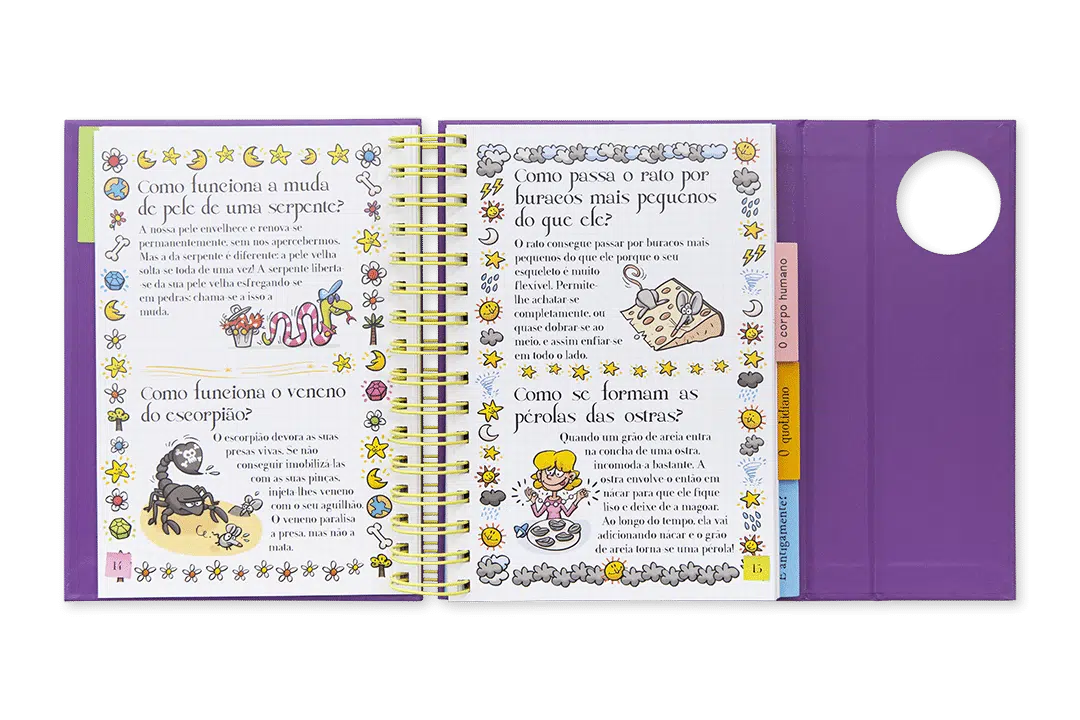 Como funciona a muda
de pele de uma serpente?
A nossa pele envelhece e renova-se
permanentemente, sem nos apercebermos.
Mas a da serpente é diferente: a pele velha
solta-se toda de uma vez! A serpente liberta-
-se da sua pele velha esfregando-se
em pedras: chama-se a isso a
muda.
Como funciona o veneno
do escorpião?
O escorpião devora as suas
presas vivas. Se não
conseguir imobilizá-las
com as suas pinças,
injeta-lhes veneno
com o seu aguilhão.
O veneno paralisa
a presa, mas não a
mata.
14
Como passa o rato por
buracos mais pequenos
do que ele?
O rato consegue passar por buracos mais
pequenos do que ele porque o seu
esqueleto é muito
flexível. Permite-
-lhe achatar-se
completamente, ou
quase dobrar-se ao
meio, e assim enfiar-se
em todo o lado.
Como se formam as
pérolas das ostras?
Quando um grão de areia entra
na concha de uma ostra,
incomoda-a bastante. A
ostra envolve-o então em
nácar para que ele fique
liso e deixe de a magoar.
Ao longo do tempo, ela vai
adicionando nácar e o grão
de areia torna-se uma pérola!
15
O corpo humano
O quotidiano
E antigamente?